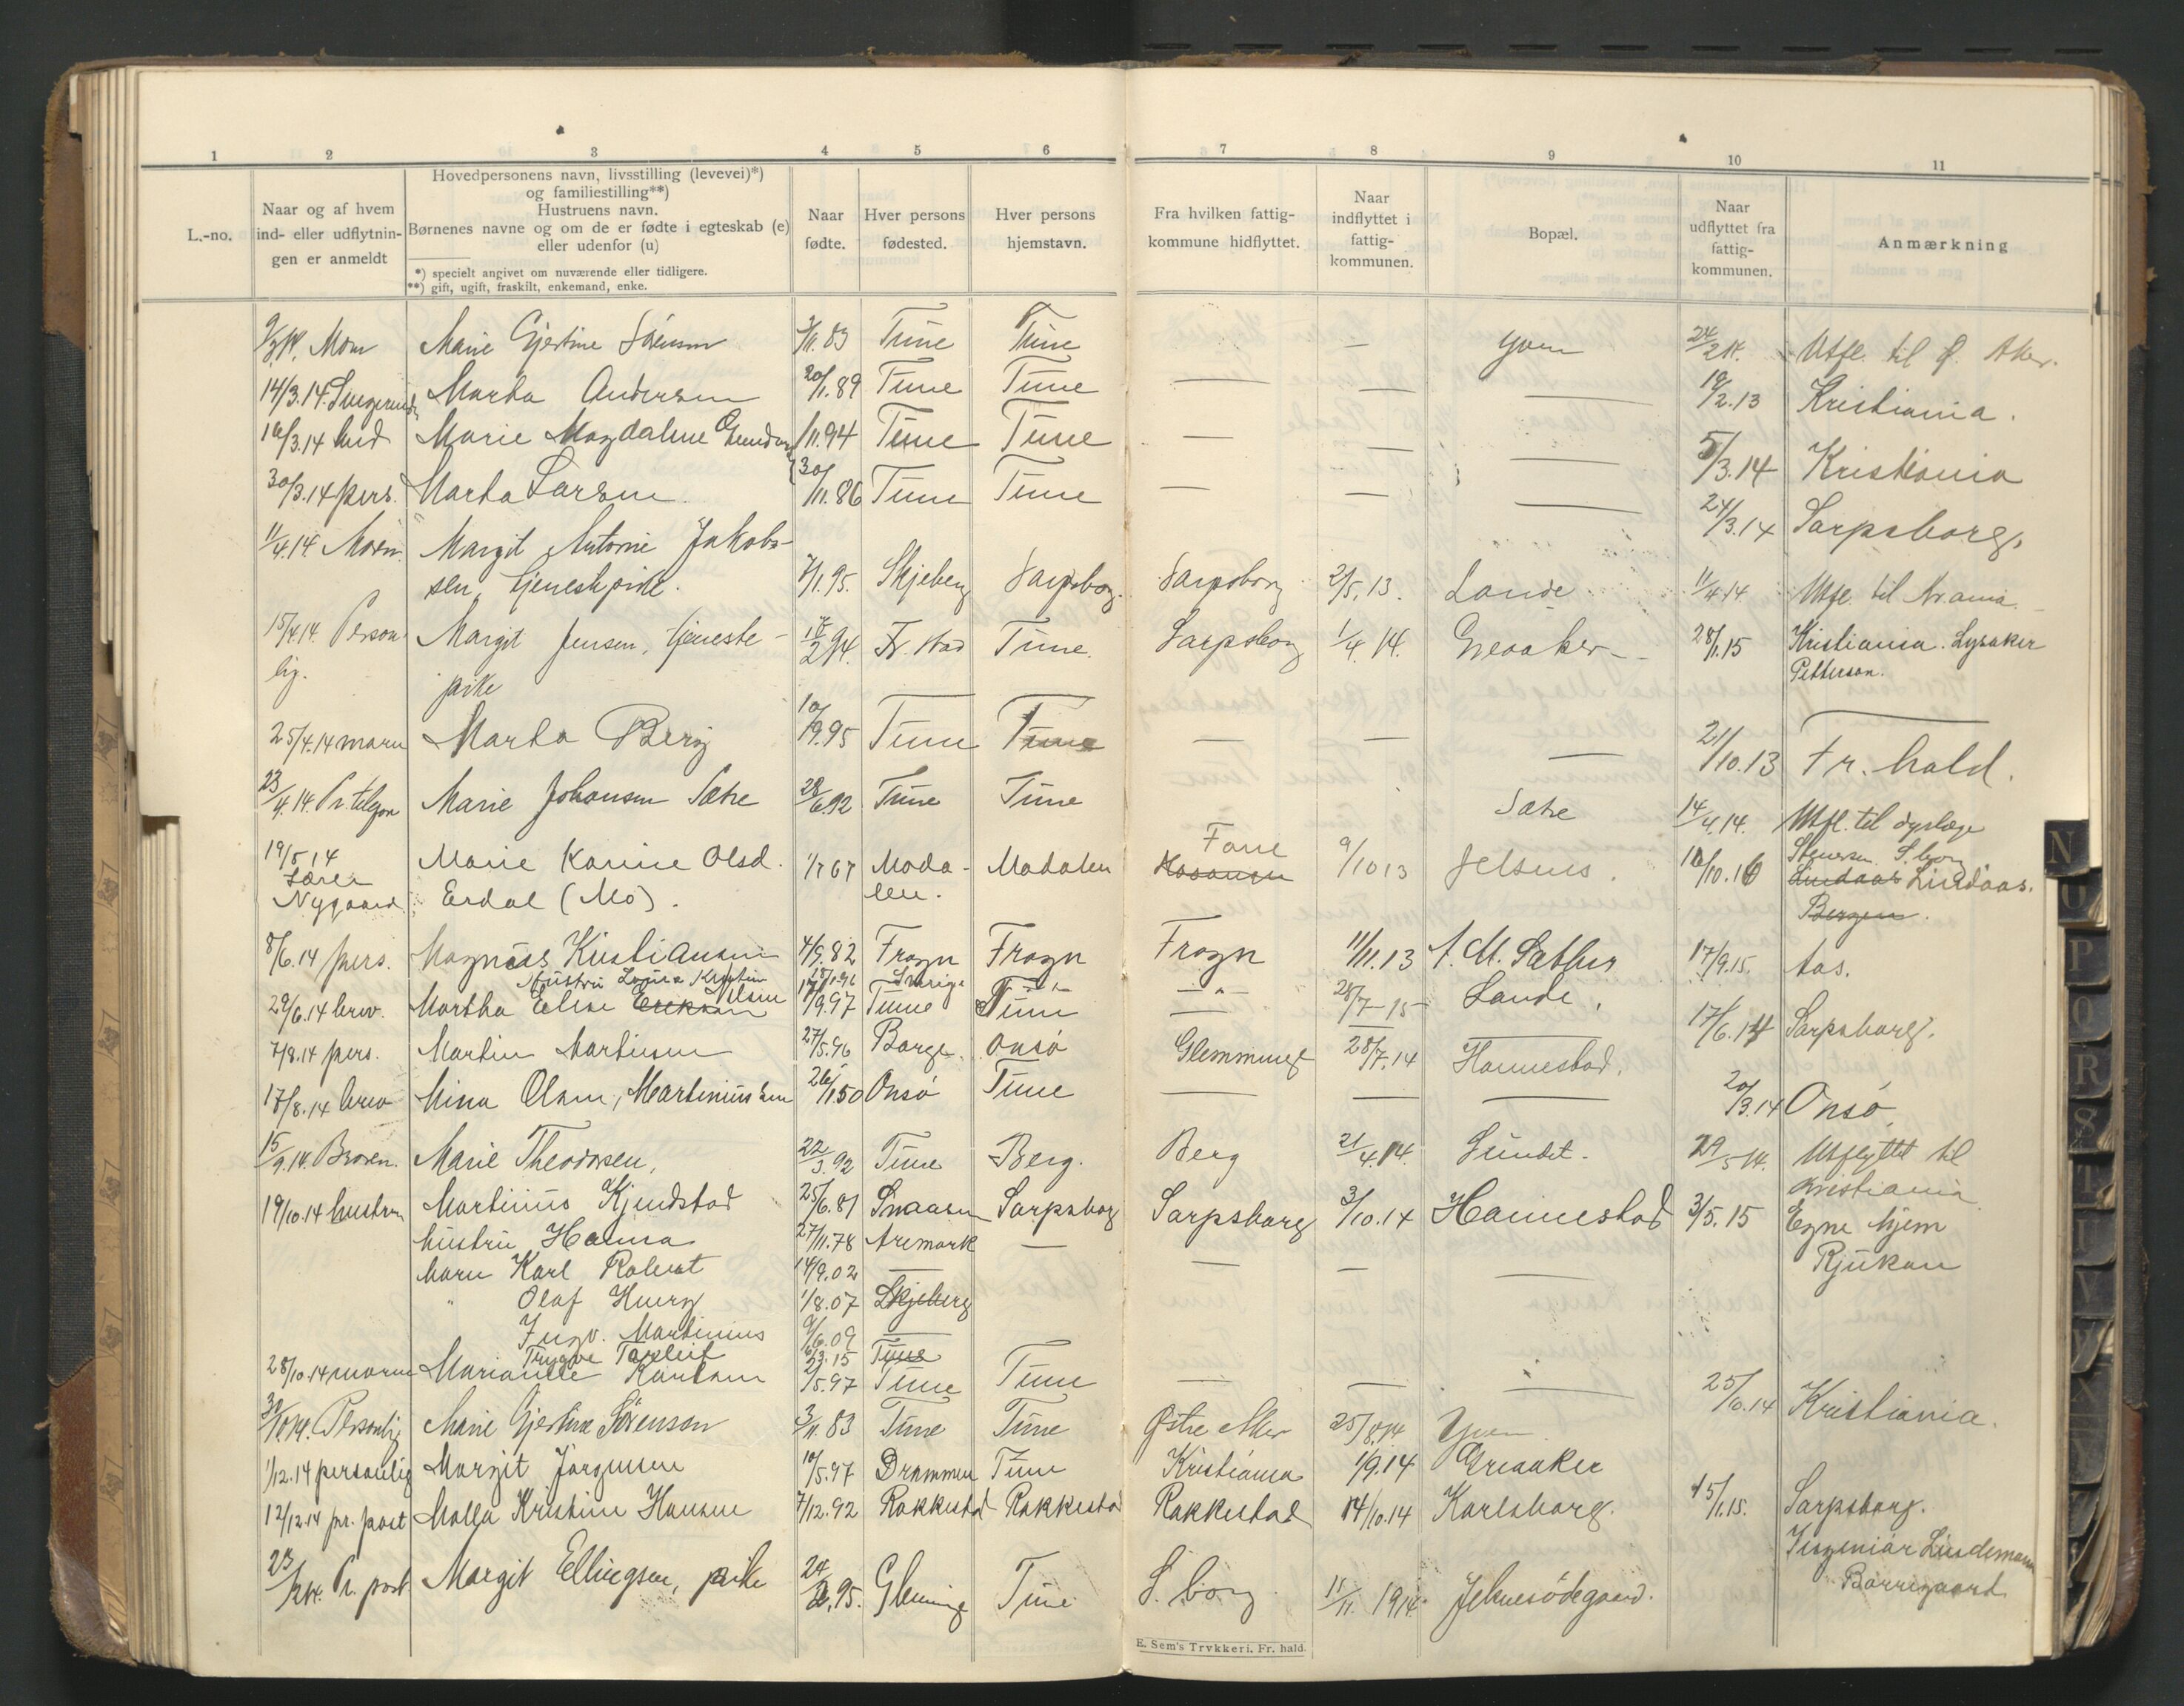 1 2 3 4 5 6 7 8 9 10 11
L.-no.
Naar og af hvem
ind- eller udflytnin-
gen er anmeldt
Hovedpersonens navn, livsstilling (levevei)*)
og familiestilling**)
Hustruens navn.
Børnenes navne og om de er fødte i egteskab (e)
eller udenfor (u)
*) specielt angivet om nuværende eller tidligere.
**) gift, ugift, fraskilt, enkemand, enke.
Naar
fødte.
Hver persons
fødested.
Hver persons
hjemstavn.
Fra hvilken fattig-
kommune hidflyttet.
Naar
indflyttet i
fattig-
kommunen.
Bopæl.
Naar
udflyttet fra
fattig-
kommunen.
Anmærkning
Marie Gjertine Sørensen 3/11.83 Tune Tune — Yven 24/2 14. Utfl. til Ø. Aker.
14/3.14. Marta Andersen 20/1.89 Tune Tune — — — 19/2.13 Kristiania.
16/3.14 bud Marie Magdalene Gundersen /11.94 Tune Tune — — — 5/3.14 Kristiania
30/3.14 pers. Marta Larsen 30/11.86 Tune Tune — — — 24/3.14 Sarpsborg.
11/4.14. Moren Margit Antonie Jakob-
sen, tjenestpike. 7/1.95. Skjeberg Sarpsborg. Sarpsborg 2/5.13. Lande 11/4.14 Utfl. til Kr.ania.
15/4.14. Person- Margit Jensen, tjeneste- 17/2 94. Fr.stad Tune. Sarpsborg 1/4.14. Greaaker 28/1.15 Kristiania. Lysaker
lig. pike Petterson.
25/4.14 moren Marta Berg 10/9.95 Tune Tune — — — 21/10.13 Fr.hald.
23/4.14. Pr. telefon Marie Johansen Sætre 28/6.92 Tune Tune Sætre 14/4.14. Utfl. til dyrlæge
Stenersen S.borg
19/5 14 Marie Karine Olsd. 1/7 67 Moda- Modalen Hosanger Fane 9/10 13 Jelsnes. 10/10.16 Lindaas Lindaas.
Lærer Erdal (Mo). len. Bergen.
Nygaard
8/6.14 pers. Magnus Kristiansen 4/9.82 Frogn Frogn Frogn 11/11.13 A. M. Sæther 17/9.15. Aas.
Hustru Lovisa Kristin Sverige —"— —"— 28/7-15 Lande.
29/6.14 brev. Martha Elise Eriksen Olsen 17/9.97 Tune Tune — — 17/6.14 Sarpsborg.
7/8.14 pers. Martin Martinsen 27/5.96 Borge. Onsø Glemminge 28/7.14 Hannestad.
17/8.14 brev Mina Olsen, Martiniussen 26/1.50 Onsø Tune — — — 20/3.14 Onsø.
15/9.14. Broren. Marie Theodorsen, 22/3.92 Tune Berg. Berg 21/4.14. Sundet. 29/5 14. Utflyttet til
Kristiania
19/10.14 hustru Martinius Kjendstad 25/6.81 Snaasen Sarpsborg Sarpsborg 3/10.14 Hannestad 3/5.15 Egne hjem
hustru Hanna 27/11.78 Aremark — Rjukan
barn Karl Robert 14/9.02 — — — —
" Olaf Henry 1/8.07 Skjeberg
Ingv. Martinius 9/6.09 —
Trygve Torleif 6/3.15 Tune
28/10.14 moren Marianne Karlsen 2/5.97 Tune Tune — — — 25/10.14 Kristiania.
30/10.14. Personlig Marie Gjertine Sørenson 3/11.83 Tune Tune Østre Aker 25/8.14 Yven
1/12.14 personlig Margit Jørgensen 10/5.97 Drammen Tune Kristiania 1/9.14 Greaaker
12/12.14 pr. post Molla Kristine Hansen 7/12.92 Rakkestad Rakkestad Rakkestad 14/10.14 Karlsborg. 15/1.15. Sarpsborg.
Ingeniør Lindemann
Borregaard
23/12 14. Pr. post. Margit Ellingsen, pike 24/2.95. Glemminge Tune S.borg 11/11. 1914. Jelsnesødegaard.
E. Sem's Trykkeri, Fr. hald.
N
O
P
Q
R
S
T
U
V
W
X
Y